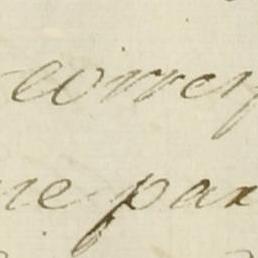 corres
ne par